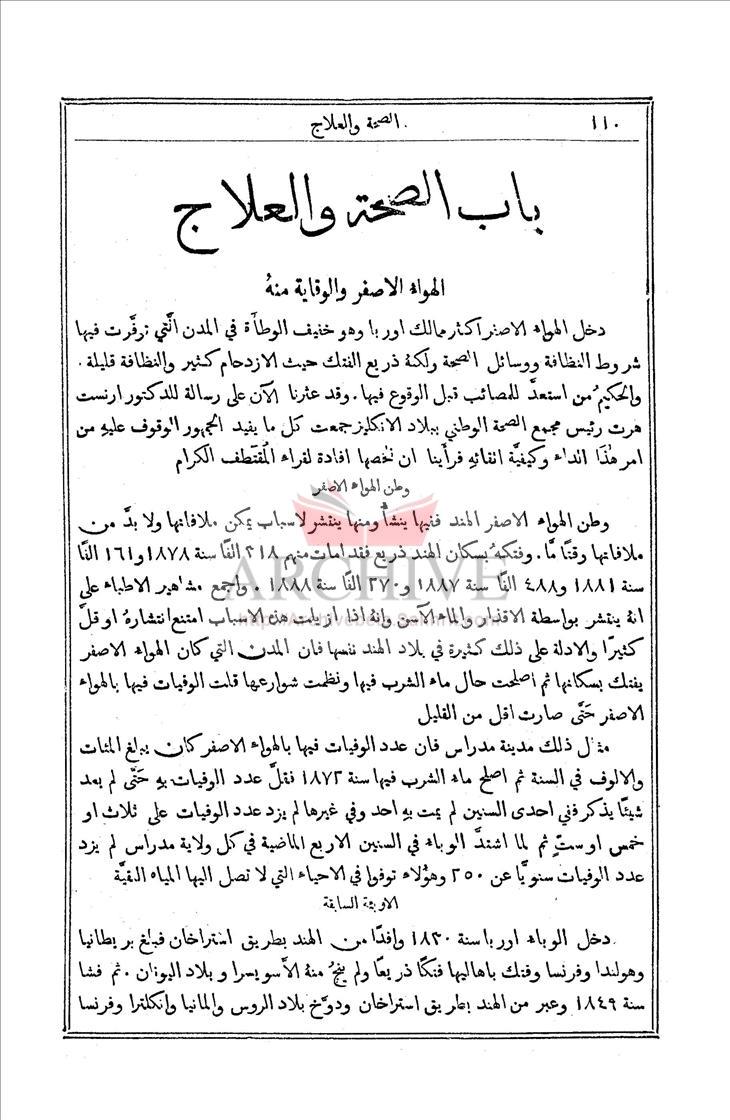 ١١٠ الصحة والعلاج
باب الصحة والعلاج
الهواء الاصفر والوقاية منهُ
دخل الهواء الاصفر اكثر ممالك اوربا وهو خفيف الوطأة في المدن الَّتي توفَّرت فيها
شروط النظافة ووسائل الصحة ولكنهُ ذريع الفتك حيث الازدحام كثير والنظافة قليلة .
والحكيم من استعدَّ للمصائب قبل الوقوع فيها . وقد عثرنا الآن على رسالة للدكتور ارنست
هرت رئيس مجمع الصحة الوطني ببلاد الانكليز جمعت كل ما يفيد الجمهور الوقوف عليهِ من
امر هٰذا الداء وكيفيَّة اتقائهِ فرأينا ان نلخصها افادة لقراء المقتطف الكرام
وطن الهواء الاصفر
وطن الهواء الاصفر الهند ففيها ينشأُ ومنها ينتشر لاسباب يمكن ملافاتها ولا بدَّ من
ملافاتها وقتًا مَّا . وفتكهُ بسكان الهند ذريع فقد امات منهم ٣١٨ الفًا سنة ١٨٧٨ و١٦١ الفًا
سنة ١٨٨١ و٤٨٨ الفًا سنة ١٨٨٧ و٢٧٠ الفًا سنة ١٨٨٨ . واجمع مشاهير الاطباء على
انهُ ينتشر بواسطة الاقذار والماء الآسن وانهُ اذا ازيلت هذه الاسباب امتنع انتشارهُ او قلَّ
كثيرًا والادلة على ذلك كثيرة في بلاد الهند نفسها فان المدن التي كان الهواء الاصفر
يفتك بسكانها ثم اصلحت حال ماء الشرب فيها ونظمت شوارعها قلت الوفيات فيها بالهواء
الاصفر حَتَّى صارت اقل من القليل
مثال ذلك مدينة مدراس فان عدد الوفيات فيها بالهواء الاصفر كان يبلغ المئات
والالوف في السنة ثم اصلح ماء الشرب فيها سنة ١٨٧٢ فقلَّ عدد الوفيات بهِ حَتَّى لم يعد
شيئًا يذكر ففي احدى السنين لم يمت بهِ احد وفي غيرها لم يزد عدد الوفيات على ثلاث او
خمس او ستٍ ثم لما اشتدَّ الوباء في السنين الاربع الماضية في كل ولاية مدراس لم يزد
عدد الوفيات سنويًّا عن ٢٥٠ وهؤلاء توفوا في الاحياء التي لا تصل اليها المياه النقيَّة
الاوبئة السابقة
دخل الوباء اوربا سنة ١٨٣٠ وافدًا من الهند بطريق استراخان فبلغ بريطانيا
وهولندا وفرنسا وفتك باهاليها فتكًا ذريعًا ولم ينجُ منهُ الَّا سويسرا و بلاد اليونان . ثم فشا
سنة ١٨٤٩ وعبر من الهند بطريق استراخان ودوَّخ بلاد الروس والمانيا وانكلترا وفرنسا
ARCHIVE